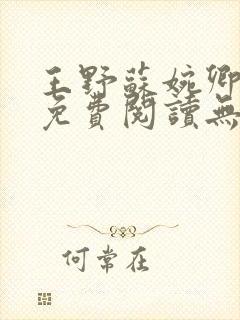 王野蘇婉卿
免費閱讀無
何常在